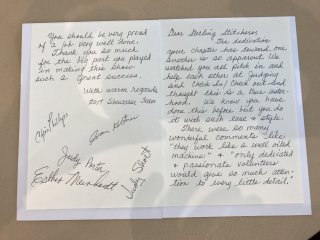 Dear Sterling Stitchers,
The dedication
your chapter has toward one
another is so apparent. We
watched you all pitch in and
help each other at Judging
and Check In/Check Out and
thought this is a true sister-
hood. We know you have
done this before but you do
it with such ease & style.
There were so many
wonderful comments like
"they work like a well oiled
machine" & "only dedicated
& passionate volunteers
would give so much atten-
tion to every little detail."
You should be very proud
of a job very well done.
Thank you so much
for the big part you played
in making this show
such a great success.
With warm regards
2017 Showcase Team
Judy
Esther
Judy Short